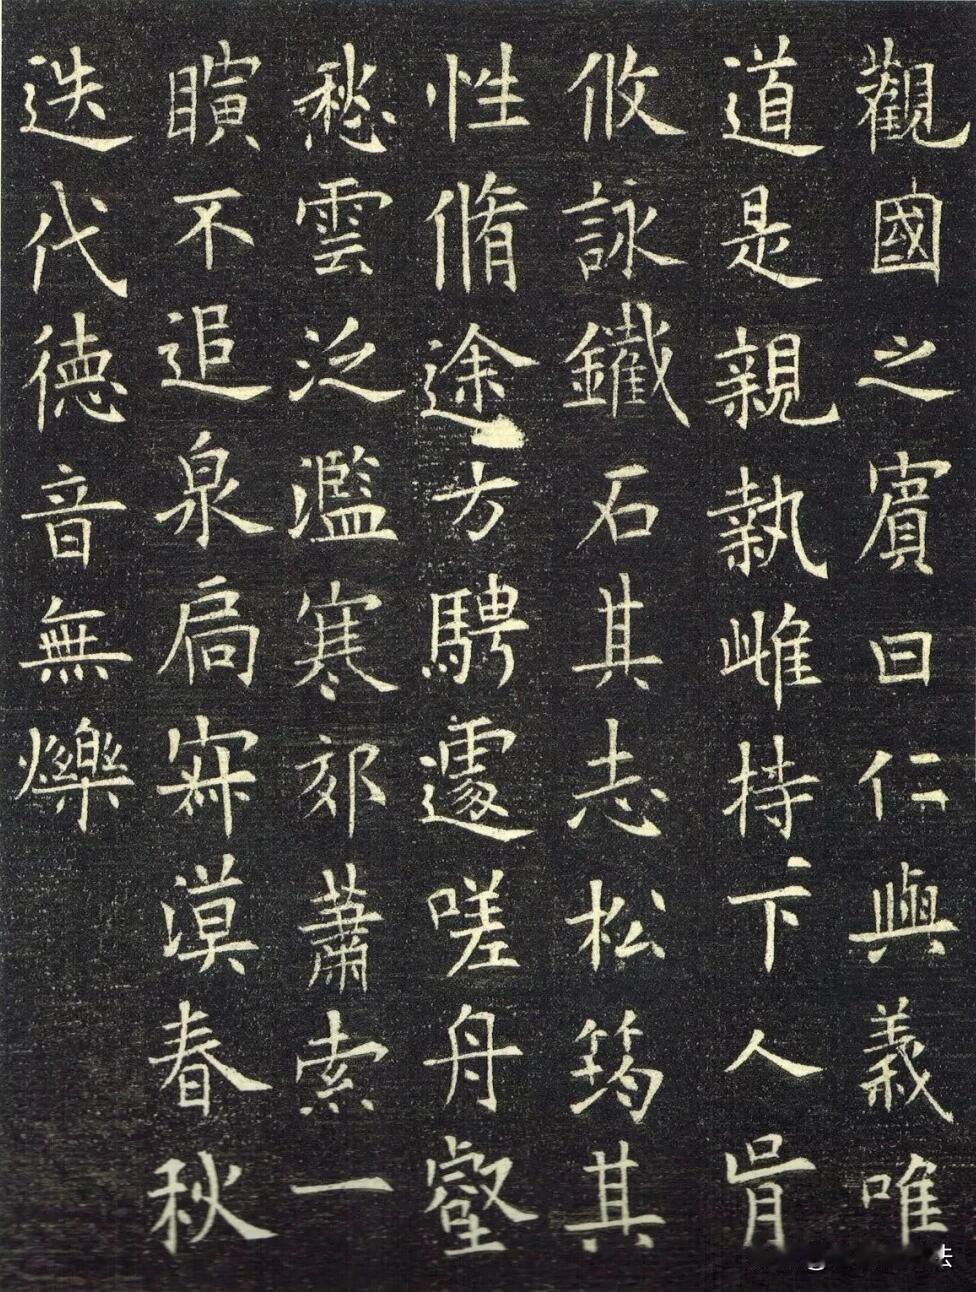 觀國之賓曰仁與義唯
道是親執雌持下人胥
攸詠鐵石其志松筠其
性脩途方騁遽嗟舟壑
愁雲泛濫寒郊蕭索一
瞚不追泉扃寂漠春秋
迭代德音無爍
法